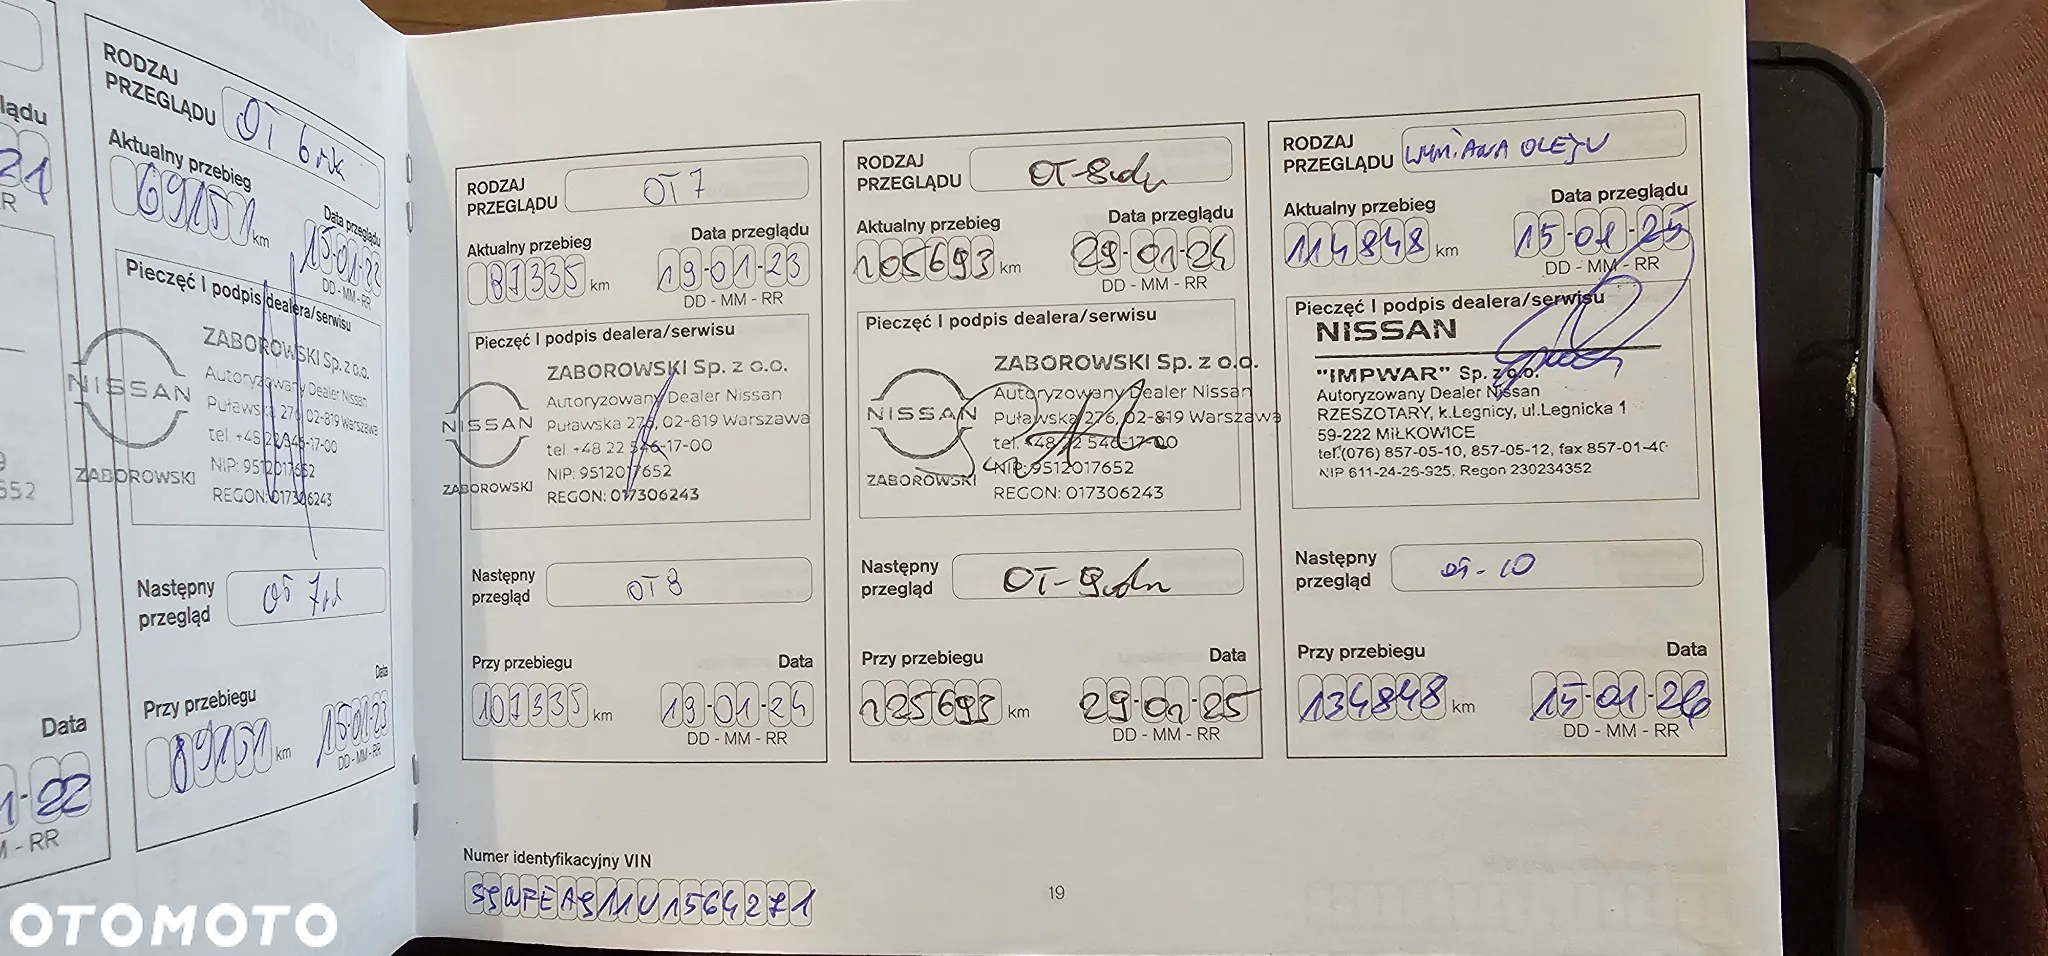 lądu
21
R
652
Data
22
M - RR
RODZAJ
PRZEGLĄDU
OT 6
Aktualny przebieg
69151 km
Data przeglądu
15-01-22
DD - MM - RR
Pieczęć I podpis dealera/serwisu
NISSAN
ZABOROWSKI
ZABOROWSKI Sp. z o.o.
Autoryzowany Dealer Nissan
Puławska 276, 02-819 Warszawa
tel. +48 22 546-17-00
NIP: 9512017652
REGON: 017306243
Następny
przegląd
Przy przebiegu
89151 km
Data
15-01-23
DD - MM - RR
RODZAJ
PRZEGLĄDU
OT 7
Aktualny przebieg
87335 km
Data przeglądu
19-01-23
DD - MM - RR
Pieczęć I podpis dealera/serwisu
NISSAN
ZABOROWSKI
ZABOROWSKI Sp. z o.o.
Autoryzowany Dealer Nissan
Puławska 276, 02-819 Warszawa
tel. +48 22 546-17-00
NIP: 9512017652
REGON: 017306243
Następny
przegląd
OT 8
Przy przebiegu
107335 km
Data
19-01-24
DD - MM - RR
RODZAJ
PRZEGLĄDU
Aktualny przebieg
105693 km
Data przeglądu
29-01-24
DD - MM - RR
Pieczęć I podpis dealera/serwisu
NISSAN
ZABOROWSKI
ZABOROWSKI Sp. z o.o.
Autoryzowany Dealer Nissan
Puławska 276, 02-819 Warszawa
tel. +48 22 546-17-00
NIP: 9512017652
REGON: 017306243
Następny
przegląd
Przy przebiegu
125693 km
Data
29-01-25
DD - MM - RR
RODZAJ
PRZEGLĄDU
WYMIANA OLEJU
Aktualny przebieg
114848 km
Data przeglądu
15-01-25
DD - MM - RR
Pieczęć I podpis dealera/serwisu
NISSAN
"IMPWAR" Sp. z o.o.
Autoryzowany Dealer Nissan
RZESZOTARY, k.Legnicy, ul.Legnicka 1
59-222 MIŁKOWICE
tel.(076) 857-05-10, 857-05-12, fax 857-01-40
NIP 611-24-25-925, Regon 230234352
Następny
przegląd
Przy przebiegu
134848 km
Data
15-01-26
DD - MM - RR
Numer identyfikacyjny VIN
SJNFEAJ11U1564271
19
OTOMOTO